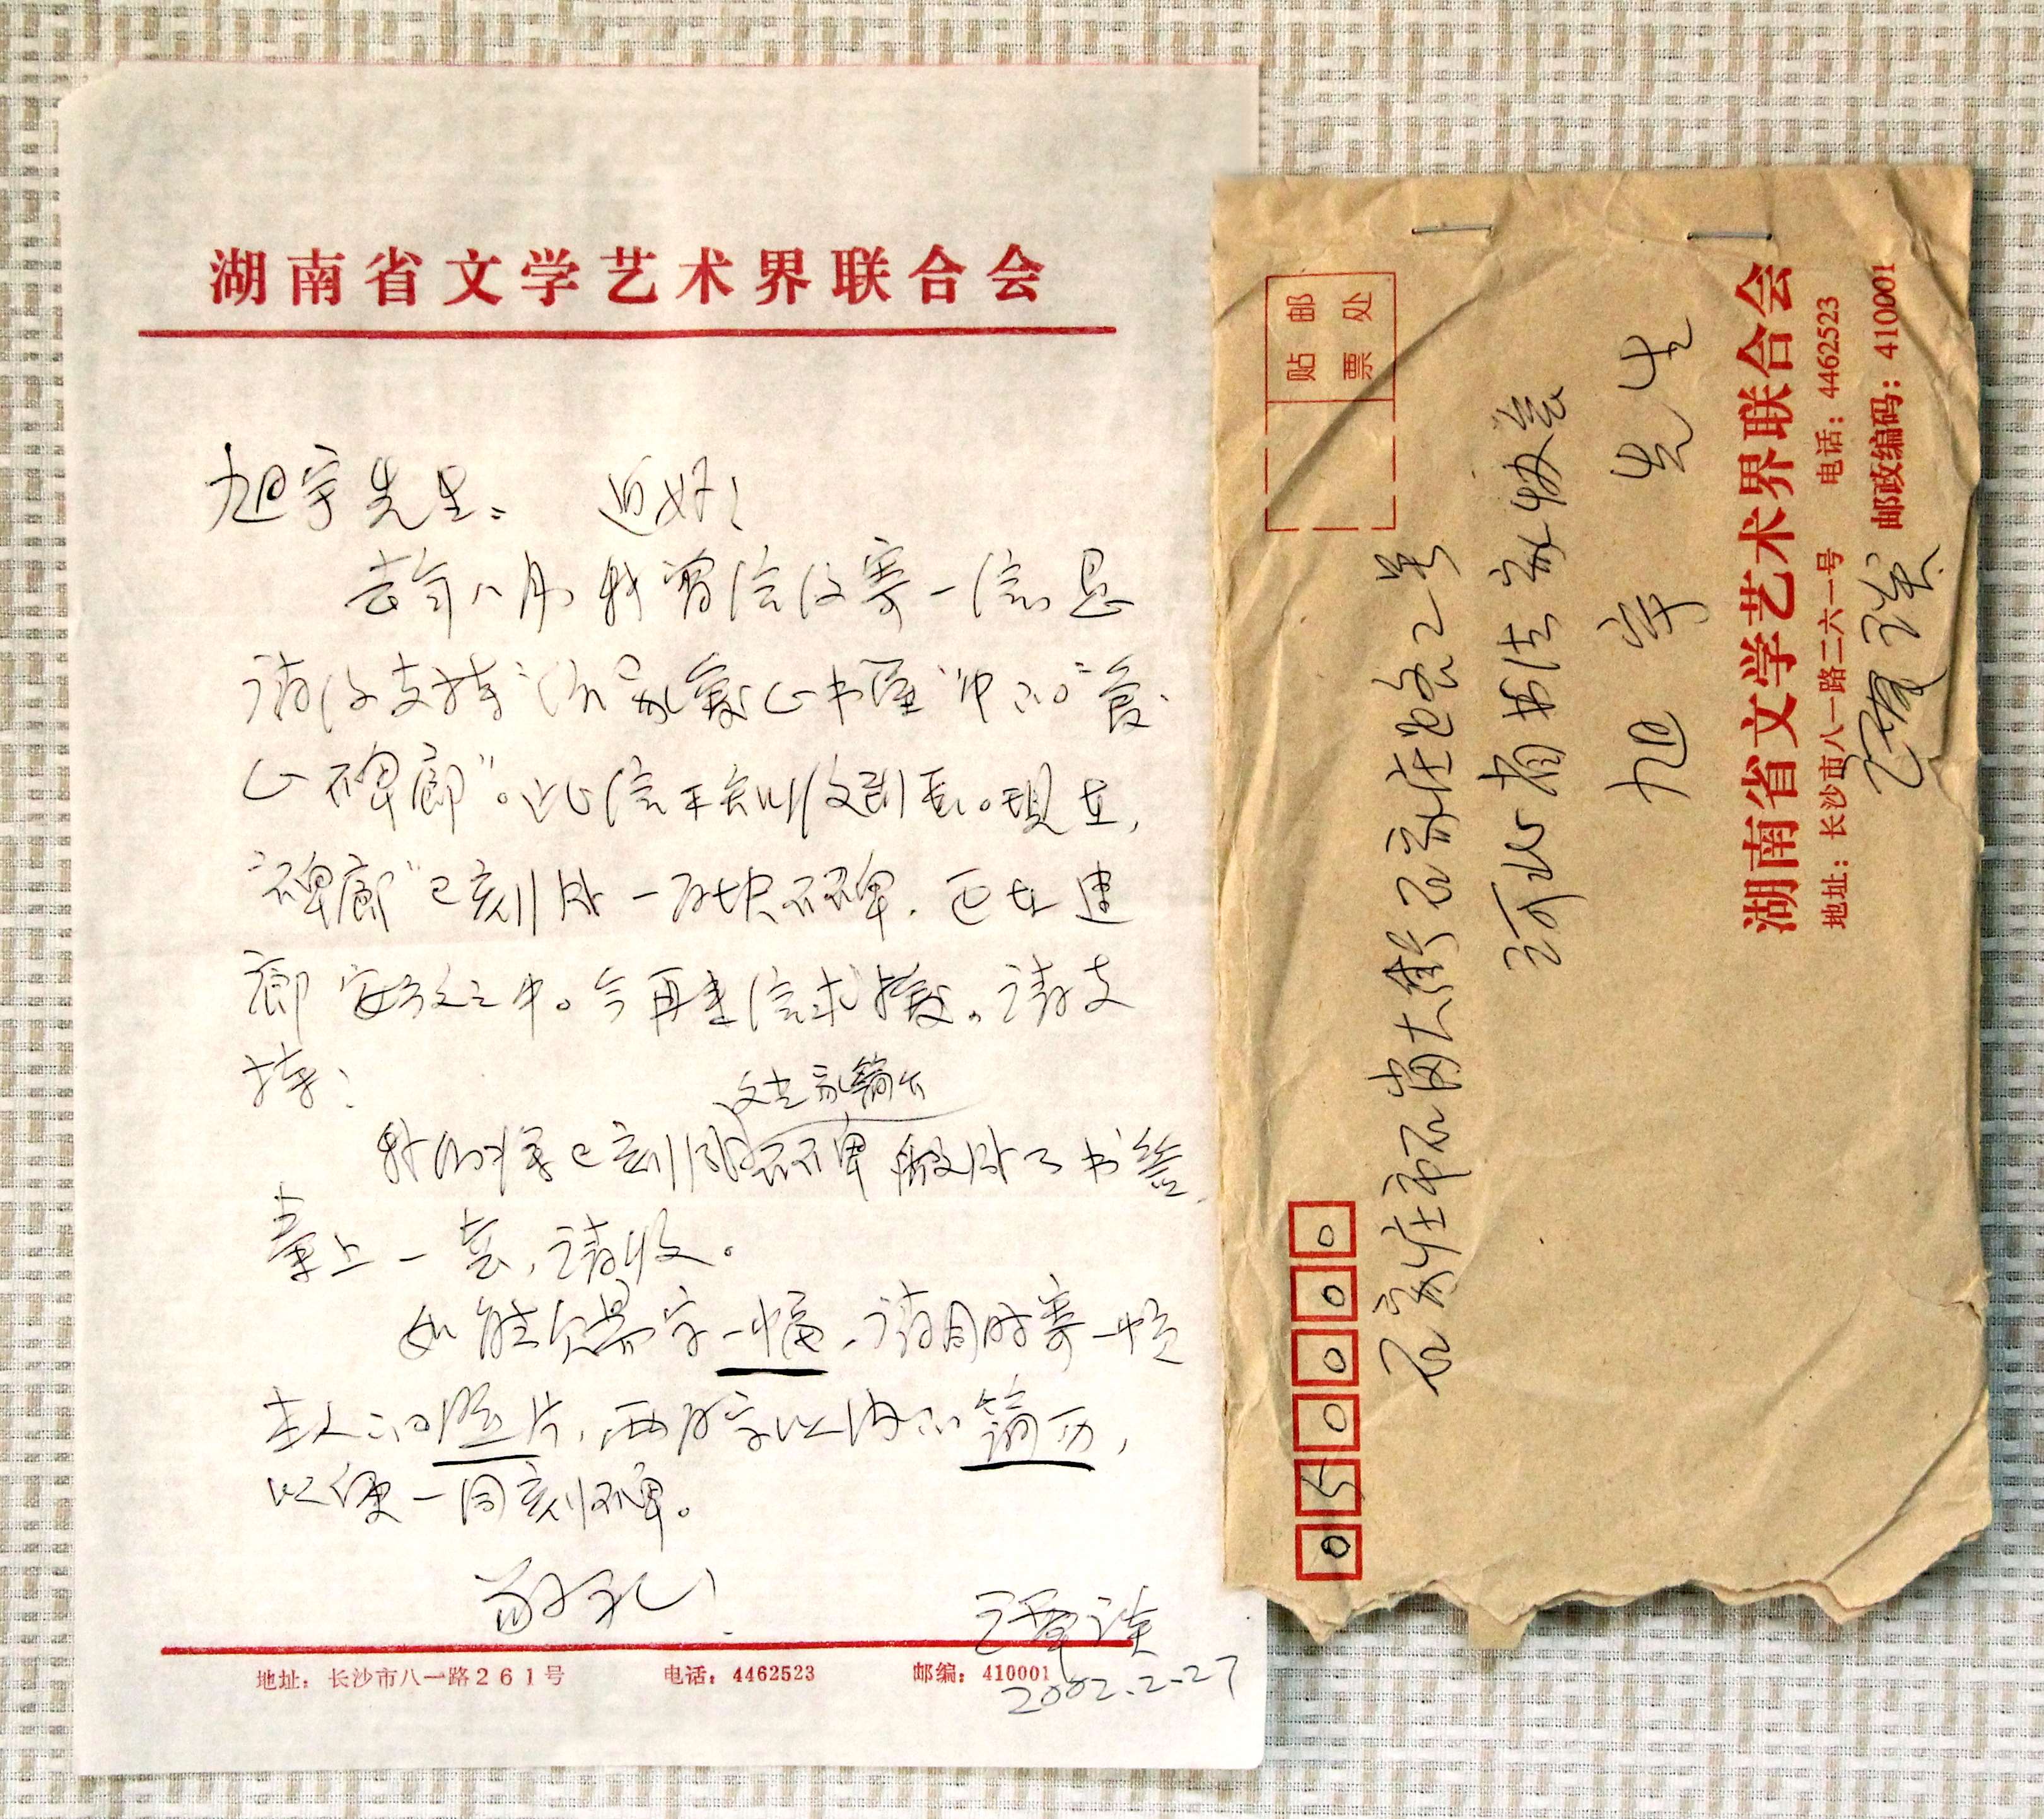 湖南省文学艺术界联合会
旭宇先生: 近好!
去年八月我曾给您寄一信,恳
请您支持“作家爱心书屋”中的“爱
心碑廊”。此信不知收到否。现在,
“碑廊”已刻出一百块石碑,正在建
廊安放之中。今再去信求援。请支
持!
我们将已刻成石碑做出了书签,
文艺家简介
寄上一套,请收。
如能欠赐字一幅,请同时寄一帧
主人的照片,两百字以内的简历,
以便一同刻碑。
敬礼!
谭谈
2002.2.27
地址:长沙市八一路261号 电话:4462523 邮编:410001
050000
贴邮票处
石家庄市石岗大街石家庄邮局2号
河北省书法家协会
旭宇先生
湖南省文学艺术界联合会
地址:长沙市八一路二六一号 电话:4462523
邮政编码:410001
谭谈